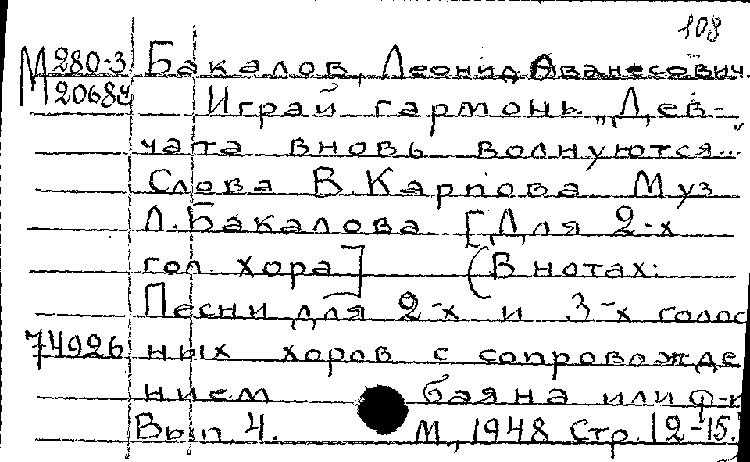 108
М280-3 Бакалов, Леонид Аванесович.
М2068 Играй гармонь „Дев-
чата вновь волнуются..."
Слова В. Карпова Муз
Л. Бакалова [Для 2-х
гол. хора] (В нотах:
Песни для 2-х и 3-х голос
74926 ных хоров с сопровожде
нием баяна или ф-п
Вып 4. М., 1948 Стр. 12-15.